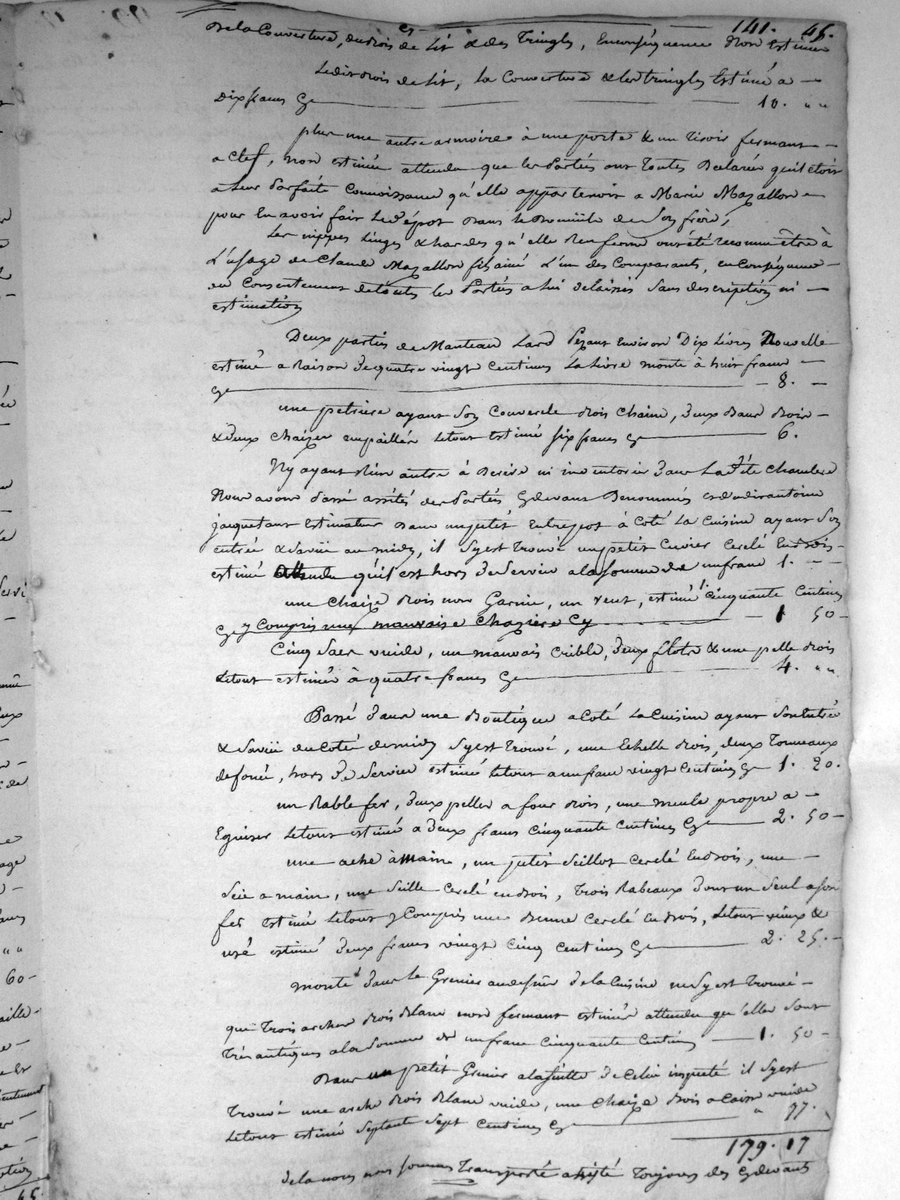 Cy 141. 45.
De la Couverture, du bois de Lit & des Tringles, En conséquence Non Estimé
Ledit bois de Lit, la Couverture & les tringles Estimé a
Dix francs Cy 10. " "
plus une autre armoire à une porte & un Tiroir fermant
a Clef, non estimée attendu que les Parties ont Toutes Déclaré qu'il étoit
a Leur Parfaite Connoissance qu'elle appartenoit a Marie Mazallon
pour En avoir fait Le dépot Dans le Domicile de Son frère,
Les nippes Linges & hardes qu'elle Renferme ont été reconnu être à
L'usage de Claude Mazallon fils ainé L'un des Comparants, en Conséquence
du Consentement de toutes les Parties a lui delaissés Sans description ni
estimation
Deux parties de Manteau Lard Pezant Environ Dix Livres Nouvelle
estimé a Raison De quatre vingt Centimes La Livre monte à huit francs
Cy 8. -
une petriere ayant Son Couvercle bois Chaine, deux Banc Bois
& deux Chaizes empaillée Le tout Estimé six francs Cy 6.
N'y ayant Rien autre à Décrire ni inventorier dans La dite Chambre
Nous avons Passé assistés des Parties Cydevant Denommés et dudit antoine
jacquetant Estimateur Dans un petit Entrepot à Coté La Cuisine ayant Son
entrée & Sortie au midy, il S'y est Trouvé un petit Cuvier Cerclé En bois
estimé attendu qu'il est hors De Service a la somme de un franc 1. -
une Chaize Bois non Garnie, un vent, estimé 1f cinquante Centimes
Cy y Compris une mauvaise Chaziere Cy 1 50
Cinq Sacs vuide, un mauvais Crible, deux flots & une pelle Bois
Le tout estimée à quatre francs Cy 4. " "
Passé dans une Boutique a Coté La Cuisine ayant Son Entrée
& Sortie du Coté de midy S'y est Trouvé, une Echelle Bois, deux Tonneaux
defoncé, hors De Service estimé Le tout a un franc vingt Centimes Cy 1. 20.
un Rable fer, deux pelles a four Bois, une meule propre a
Eguiser Le tout estimé a Deux francs Cinquante Centimes Cy 2. 50
une ache à main, un petit Seillot Cerclé En Bois, une
Scie a main, une Seille Cerclé en Bois, Trois Rabeaux dont un Seul a son
fer estimé Le tout y Compris une Benne Cerclé En Bois, Le tout vieux &
usé estimé deux francs vingt Cinq Centimes Cy 2. 25.
monté dans Le Grenier au dessus de la Cuisine ne S'y est Trouvé
que Trois arches Bois Blanc non fermant estimée attendu qu'elles Sont
Très antiques a la Somme de un franc Cinquante Centimes 1. 50
Dans un petit Grenier a la suitte de Celui il S'y est
Trouvé une arche Bois Blanc vuide, une Chaize Bois a vuide
Le tout estimé Septante Sept Centimes Cy " 77.
179. 17
de la nous nous sommes Transporté assisté Toujours des Cydevant